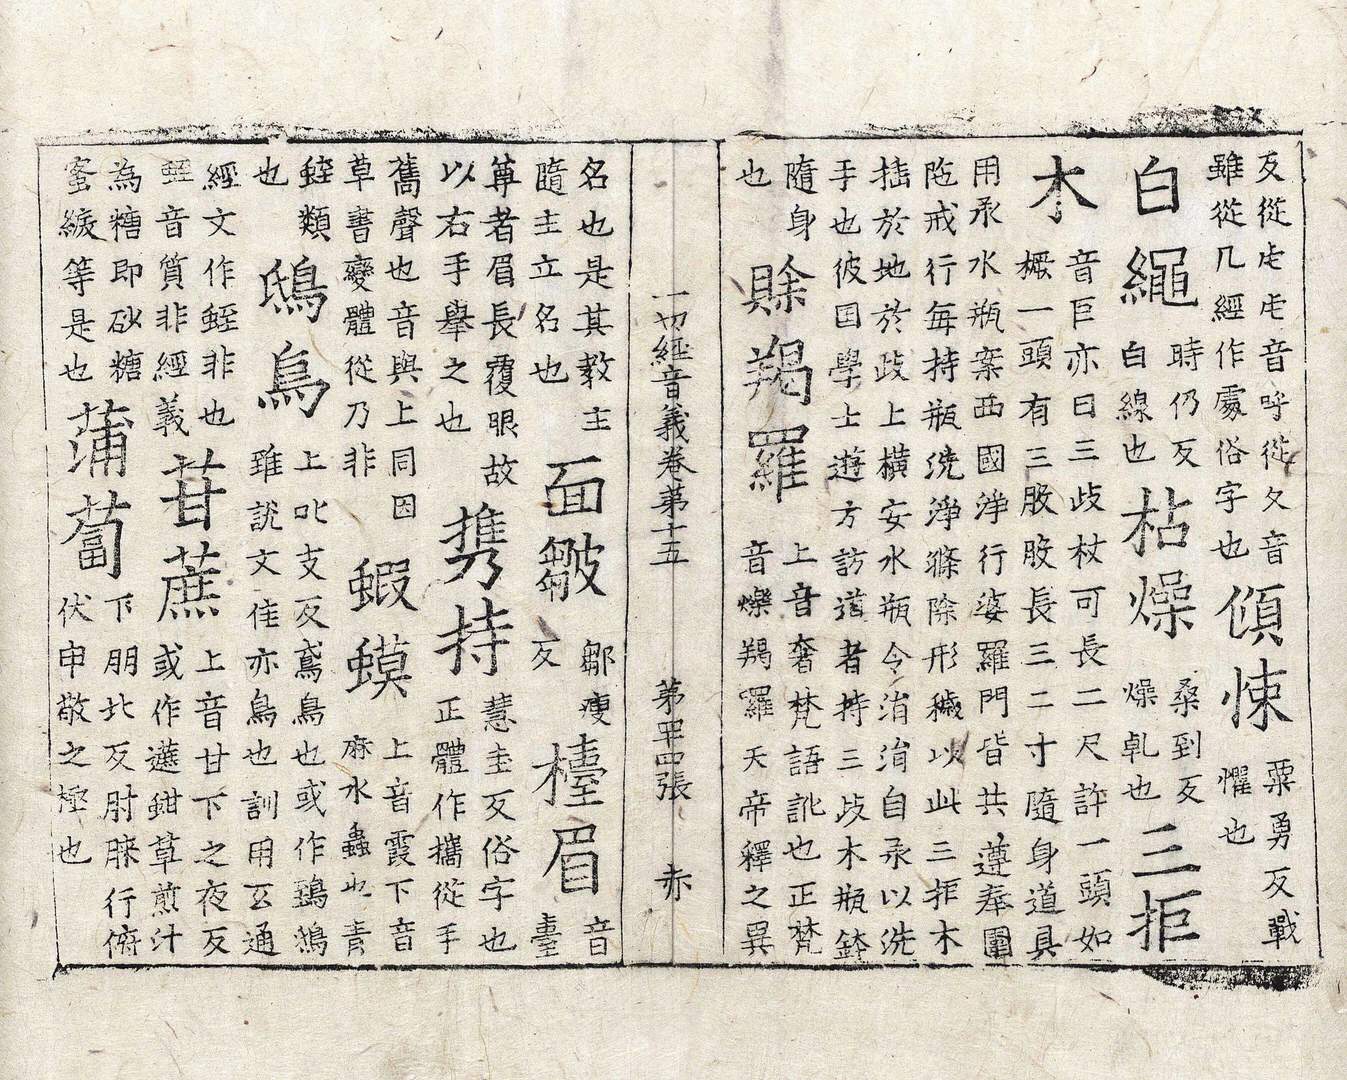 反從虍虍音呼從夂音
雖從几經作處俗字也
傾悚
粟勇反戰
懼也
白繩
時仍反
白線也
枯燥
桑到反
燥乹也
三拒
木
音巨亦曰三歧杖可長二尺許一頭如
橛一頭有三股股長三二寸隨身道具
用承水瓶案西國淨行婆羅門皆共遵奉圍
陁戒行每持瓶澆淨滌除形穢以此三拒木
插於地於歧上橫安水瓶令涓涓自承以洗
手也彼国學士遊方訪道者持三歧木瓶鉢
隨身
也
賖羯羅
上音奢梵語訛也正梵
音爍羯羅天帝釋之異
一切經音義卷苐十五 苐罒四張 赤
名也是其教主
隨主立名也
面皺
鄒瘦
反
㯓眉
音
臺
尊者眉長覆眼故
以右手舉之也
携持
慧圭反俗字也
正體作攜從手
舊聲也音與上同因
草書變體從乃非
蝦蟆
上音霞下音
麻水蟲也青
類
也
鴟鳥
上叱支反鳶鳥也或作鵄鴻
雖說文隹亦鳥也訓用玄通
經文作蛭非也
蛭音質非經義
苷蔗
上音甘下之夜反
或作䗪鉗草煎汁
為糖即砂糖
蜜等是也
蒲蔔
下朋北反肘膝行俯
伏申敬之極也